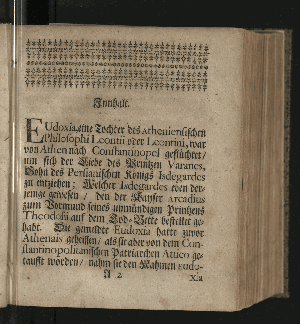 Innhalt.
EUdoxia, eine Tochter des Atheniensischen
Philosophi Leontii oder Leontini, war
von Athen nach Constantinopel geflüchtet/
um sich der Liebe des Printzen Varanes,
Sohn des Persianischen Königs Isdegardes
zu entziehen; Welcher Isdegardes eben der-
jenige gewesen / den der Kayser Arcadius
zum Vormund seines unmündigen Printzens
Theodosii auf dem Tod-Bette bestellet ge-
habt. Die gemeldte Eudoxia hatte zuvor
Athenais geheissen / als sie aber von dem Con-
stantinopolitanischen Patriarchen Attico ge-
taufft worden / nahm sie den Nahmen Eudo-
A 2 xia